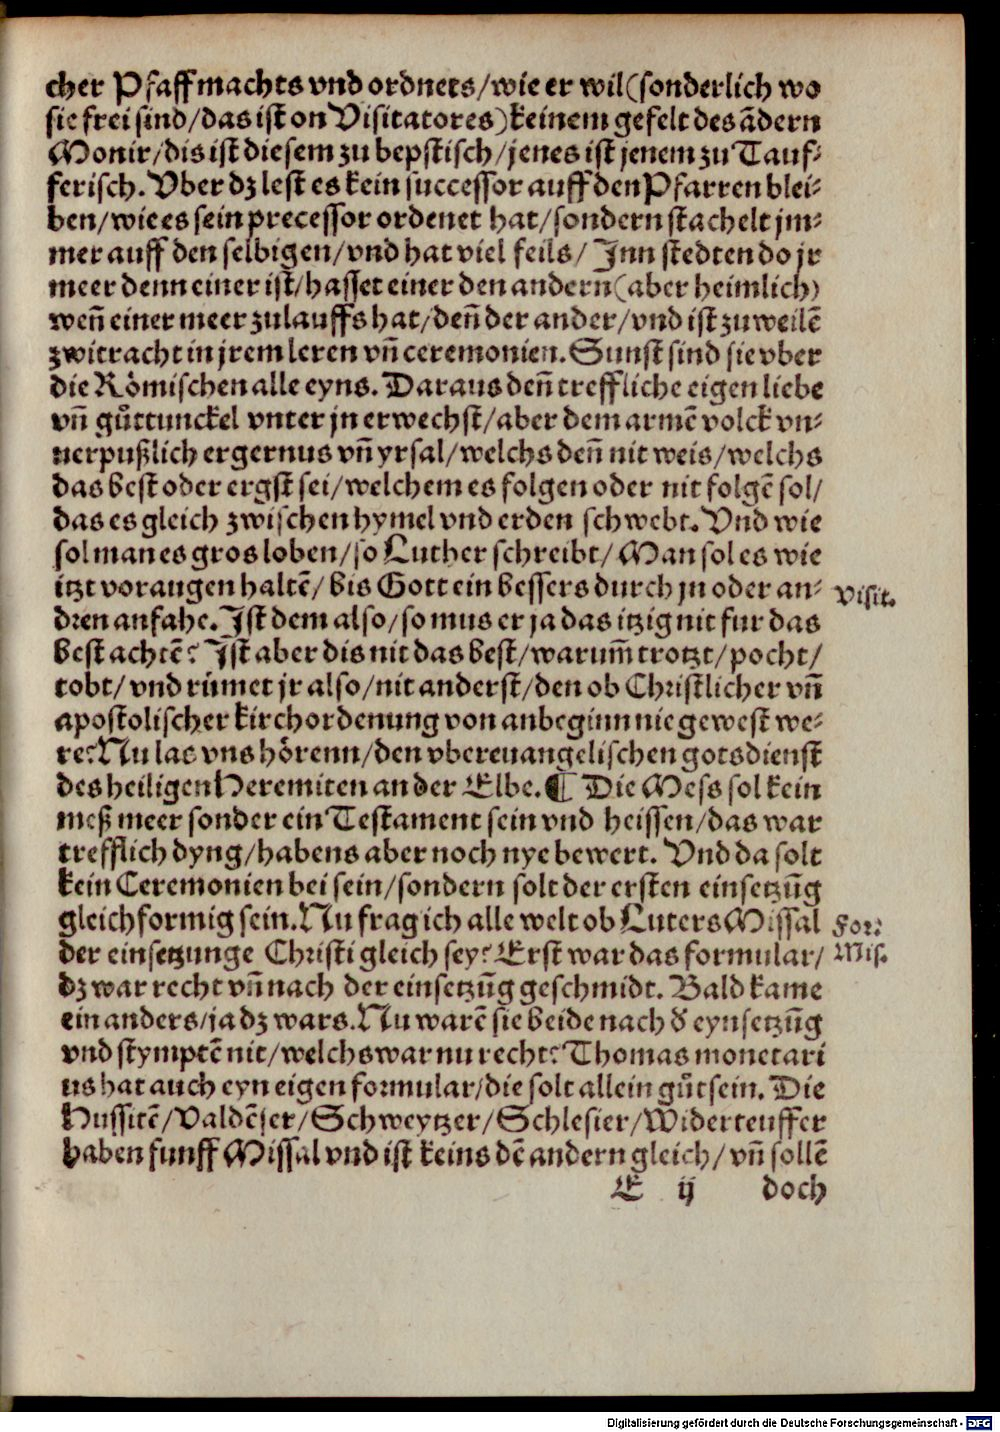 cher Pfaff machts vnd ordnets/wie er wil(sonderlich wo
sie frei sind/das ist on Visitatores)keinem gefelt des ādern
Monir/dis ist diesem zu bepstisch/jenes ist jenem zu Tauf-
ferisch. Vber dz lest es kein successor auff den Pfarren blei-
ben/wie es sein precessor ordenet hat/sondern stachelt jm-
mer auff den selbigen/vnd hat viel feils/ Inn stedten do jr
meer denn einer ist/hasset einer den andern(aber heimlich)
weñ einer meer zulauffs hat/deñ der ander/vnd ist zuweilē
zwitracht in jrem leren vñ ceremonien. Sunst sind sie vber
die Römischen alle eyns. Daraus deñ treffliche eigen liebe
vñ gůttunckel vnter jn erwechst/aber dem armē volck vn-
uerpußlich ergernus vñ yrsal/welchs deñ nit weis/welchs
das best oder ergst sei/welchem es folgen oder nit folgē sol/
das es gleich zwischen hymel vnd erden schwebt. Vnd wie
sol man es gros loben/so Luther schreibt/Man sol es wie
itzt vor augen haltē/ bis Gott ein bessers durch jn oder an-
dren anfahe. Ist dem also/so mus er ja das itzig nit fur das
best achtē? Ist aber dis nit das best/warum̄ trotzt/pocht/
tobt/vnd rümet jr also/nit anderst/den ob Christlicher vñ
apostolischer kirchordenung von anbeginn nie gewest we-
re? Nu las vns hörenn/den vbereuangelischen gotsdienst
des heiligen Heremiten an der Elbe. ¶ Die Mess sol kein
meß meer sonder ein Testament sein vnd heissen/das war
trefflich dyng/habens aber noch nye bewert. Vnd da solt
kein Ceremonien bei sein/sondern solt der ersten einsetzūg
gleichformig sein. Nu frag ich alle welt ob Luters Missal
der einsetzunge Christi gleich sey? Erst war das formular/
dz war recht vñ nach der einsetzūg geschmidt. Bald kame
ein anders/ja dz wars. Nu warē sie beide nach d̕ eynsetzūg
vnd stymptē nit/welchs war nu recht? Thomas monetari
us hat auch eyn eigen formular/die solt allein gůt sein. Die
Hussitē/Valdēser/Schweytzer/Schlesier/Widerteuffer
haben funff Missal vnd ist keins dē andern gleich/vñ sollē
E ij doch
Visit.
For:
Mis.
Digitalisierung gefördert durch die Deutsche Forschungsgemeinschaft - DFG